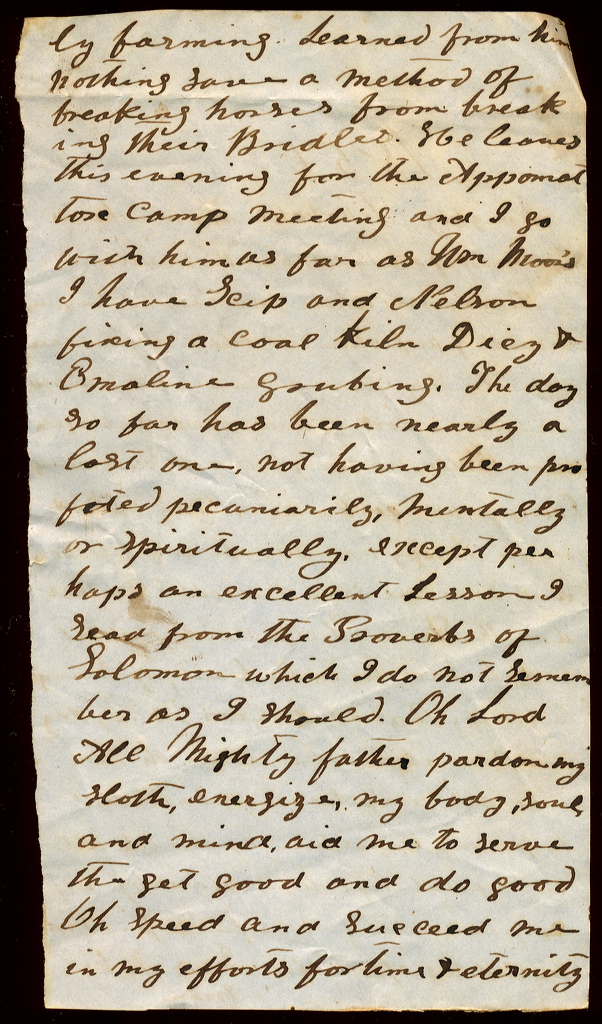 ly farming. Learned from him
nothing save a method of
breaking horses from break
ing their Bridles. He leaves
this evening for the Appomat
tox Camp Meeting and I go
with him as far as Wm Moor's
I have Scip and Nelson
fixing a coal kiln Dicy &
Emaline grubing. The day
so far has been nearly a
lost one, not having been pro
fited pecuniarily, mentally
or spiritually, except per
haps an excellent Lesson I
read from the Proverbs of
Solomon which I do not remem
ber as I should. Oh Lord
All Mighty father pardon my
sloth, energize, my body, soul,
and mind, aid me to serve
the get good and do good
Oh speed and succeed me
in my efforts for time & eternity